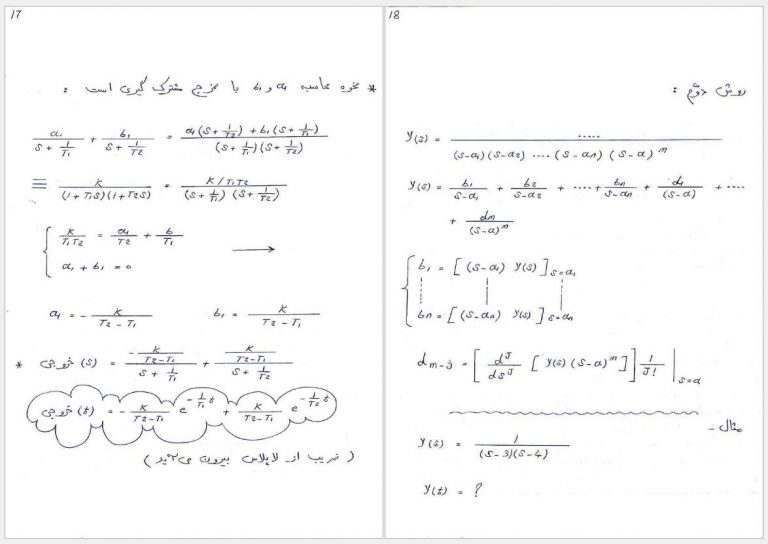 17
* نحوه محاسبه a₁ و b₁ با مخرج مشترک گیری است :
a₁/(S + 1/T₁) + b₁/(S + 1/T₂) = (a₁(S + 1/T₂) + b₁(S + 1/T₁))/((S + 1/T₁)(S + 1/T₂))
≡ K/((1+T₁S)(1+T₂S)) = (K/T₁T₂)/((S + 1/T₁)(S + 1/T₂))
{ K/(T₁T₂) = a₁/T₂ + b/T₁ ⟶
a₁ + b₁ = 0
a₁ = - K/(T₂ - T₁) b₁ = K/(T₂ - T₁)
* خروجی (S) = (-K/(T₂-T₁))/(S + 1/T₁) + (K/(T₂-T₁))/(S + 1/T₂)
خروجی (t) = - K/(T₂-T₁) e^(-1/T₁ t) + K/(T₂-T₁) e^(-1/T₂ t)
( ضریب از لاپلاس بیرون می‌آید )
18
روش دوّم :
y(s) = ...../((s-a₁)(s-a₂) .... (s-an)(s-a)^m)
y(s) = b₁/(s-a₁) + b₂/(s-a₂) + .... + bn/(s-an) + d₁/(s-a) + ....
+ dm/(s-a)^m
{ b₁ = [ (s-a₁) y(s) ] s=a₁
bn = [ (s-an) y(s) ] s=an
d m-J = [ d^J/ds^J [ y(s) (s-a)^m ] ] 1/J! | s=a
مثال -
y(s) = 1/((s-3)(s-4))
y(t) = ?